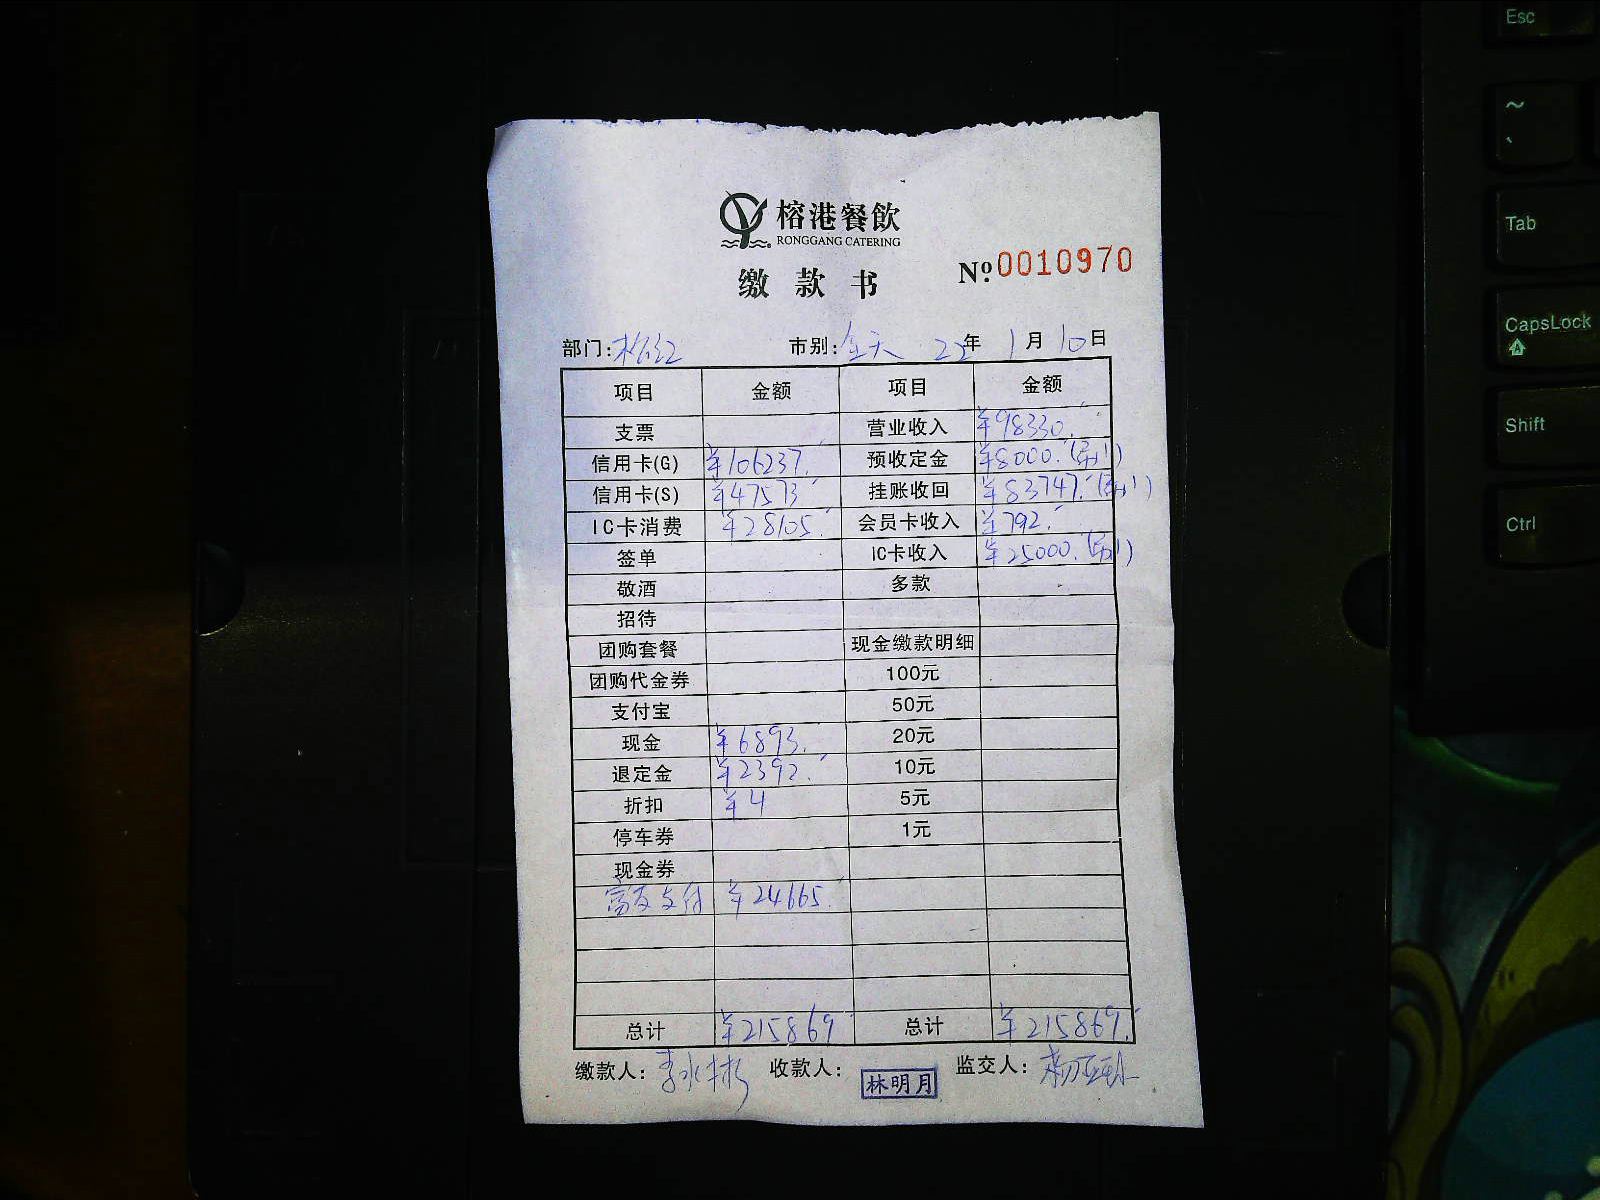 榕港餐飲
RONGGANG CATERING
缴款书
№ 0010970
部门: 市别:全天 22年 1月 10日
项目 金额 项目 金额
支票 营业收入 ¥98330.
信用卡(G) ¥106237. 预收定金 ¥8000.
信用卡(S) ¥47573 挂账收回 ¥83747.
IC卡消费 ¥28105. 会员卡收入 ¥792.
签单 IC卡收入 ¥25000.
敬酒 多款
招待
团购套餐 现金缴款明细
团购代金券 100元
支付宝 50元
现金 ¥6893. 20元
退定金 ¥2392. 10元
折扣 ¥4 5元
停车券 1元
现金券
富友支付 ¥24665.
总计 ¥215869 总计 ¥215869.
缴款人: 收款人: 林明月 监交人:
Esc
~
`
Tab
CapsLock
A
Shift
Ctrl